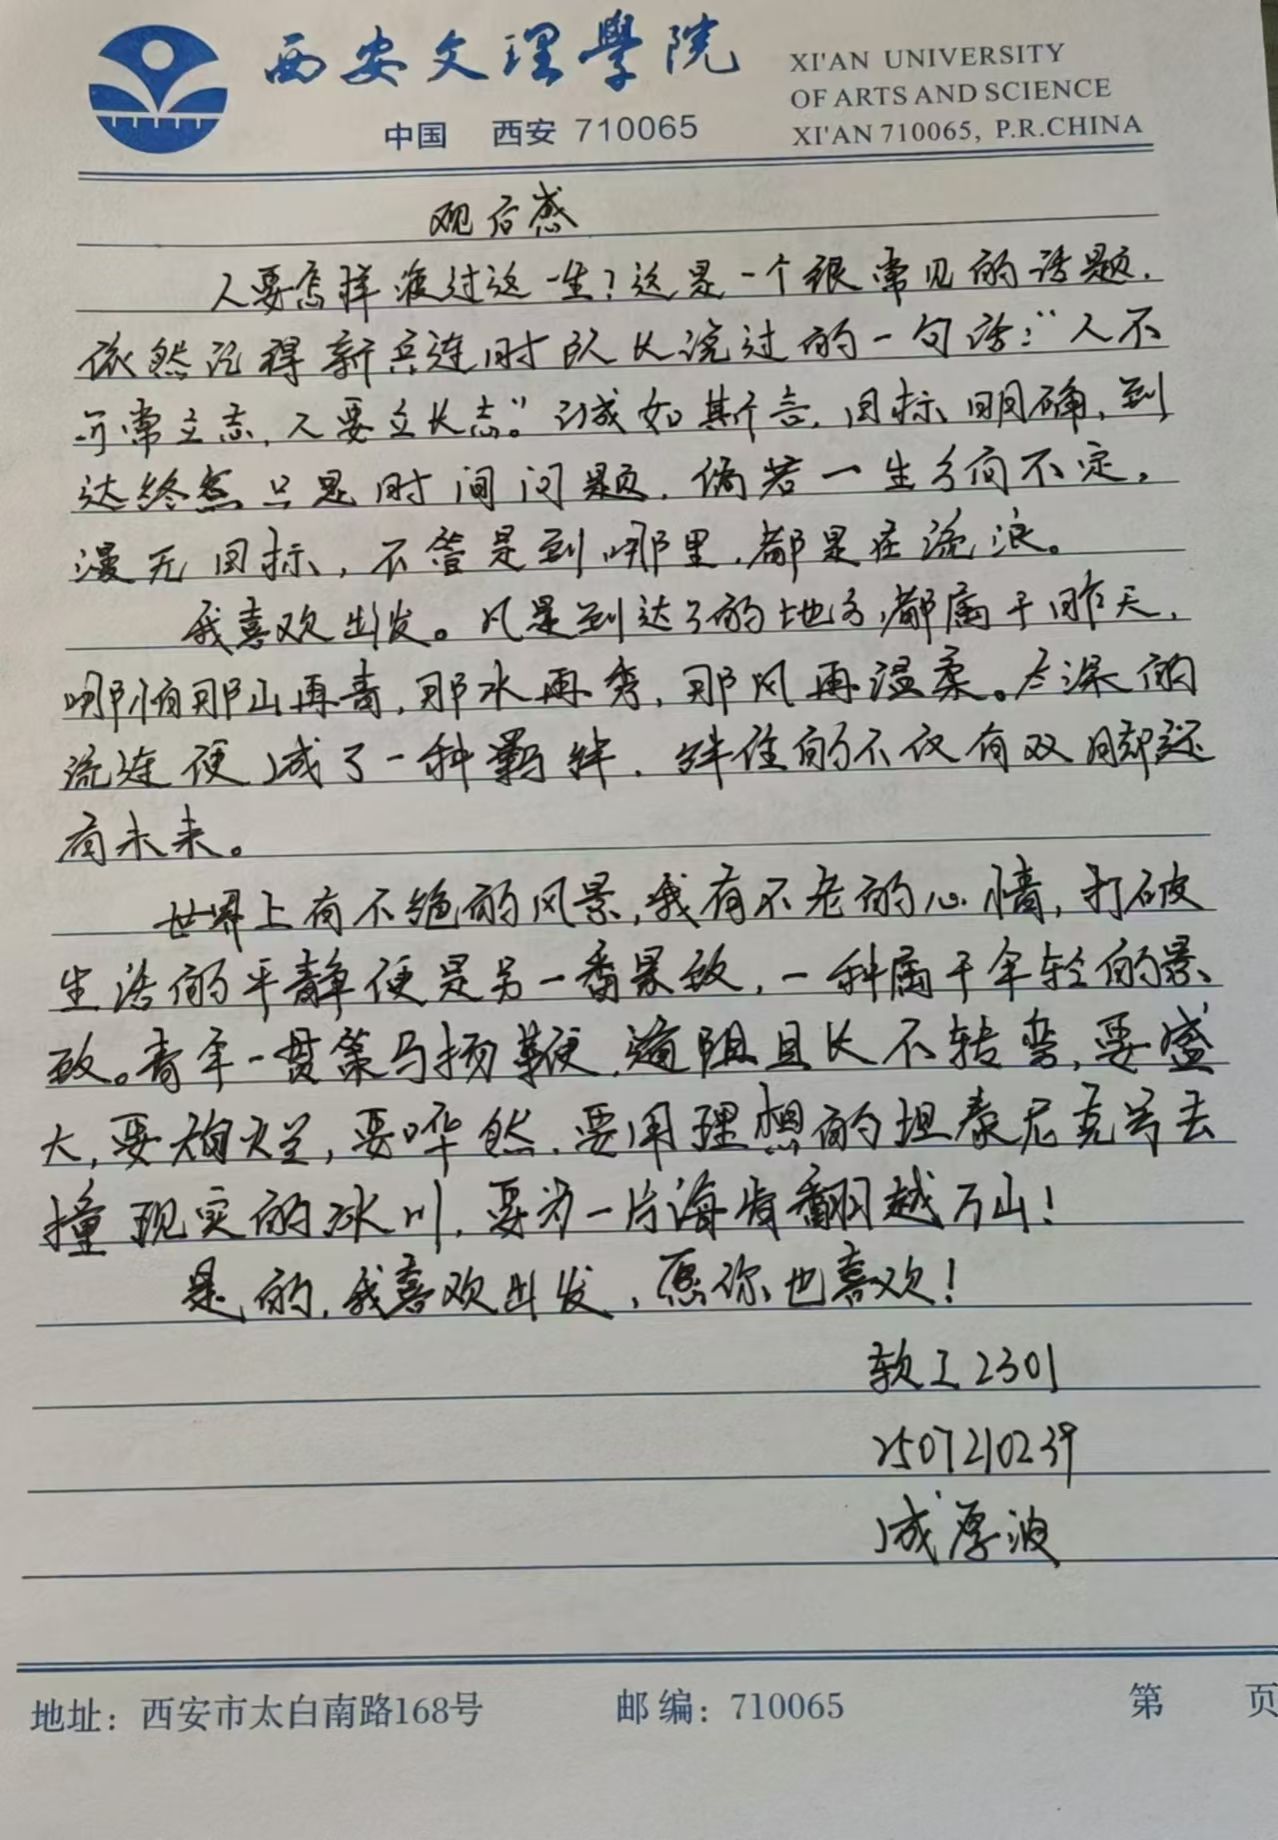 西安文理學院
中国 西安 710065
XI'AN UNIVERSITY
OF ARTS AND SCIENCE
XI'AN 710065, P.R.CHINA
观后感
人要怎样渡过这一生？这是一个很常见的话题.
依然记得新兵连时队长说过的一句话："人不
可常立志,人要立长志。"诚如斯言.目标明确,到
达终点只是时间问题.倘若一生方向不定,
漫无目标,不管是到哪里,都是在流浪。
我喜欢出发。凡是到达了的地方,都属于昨天,
哪怕那山再青,那水再秀,那风再温柔。太深的
流连便成了一种羁绊.绊住的不仅有双脚还
有未来。
世界上有不绝的风景,我有不老的心情,打破
生活的平静便是另一番景致,一种属于年轻的景
致。青年一贯策马扬鞭,道阻且长不转弯,要盛
大,要绚烂,要哗然.要用理想的坦泰尼克号去
撞现实的冰川,要为一片海肯翻越万山!
是的,我喜欢出发,愿你也喜欢!
软工2301
2507210239
成厚波
地址：西安市太白南路168号 邮编：710065 第 页